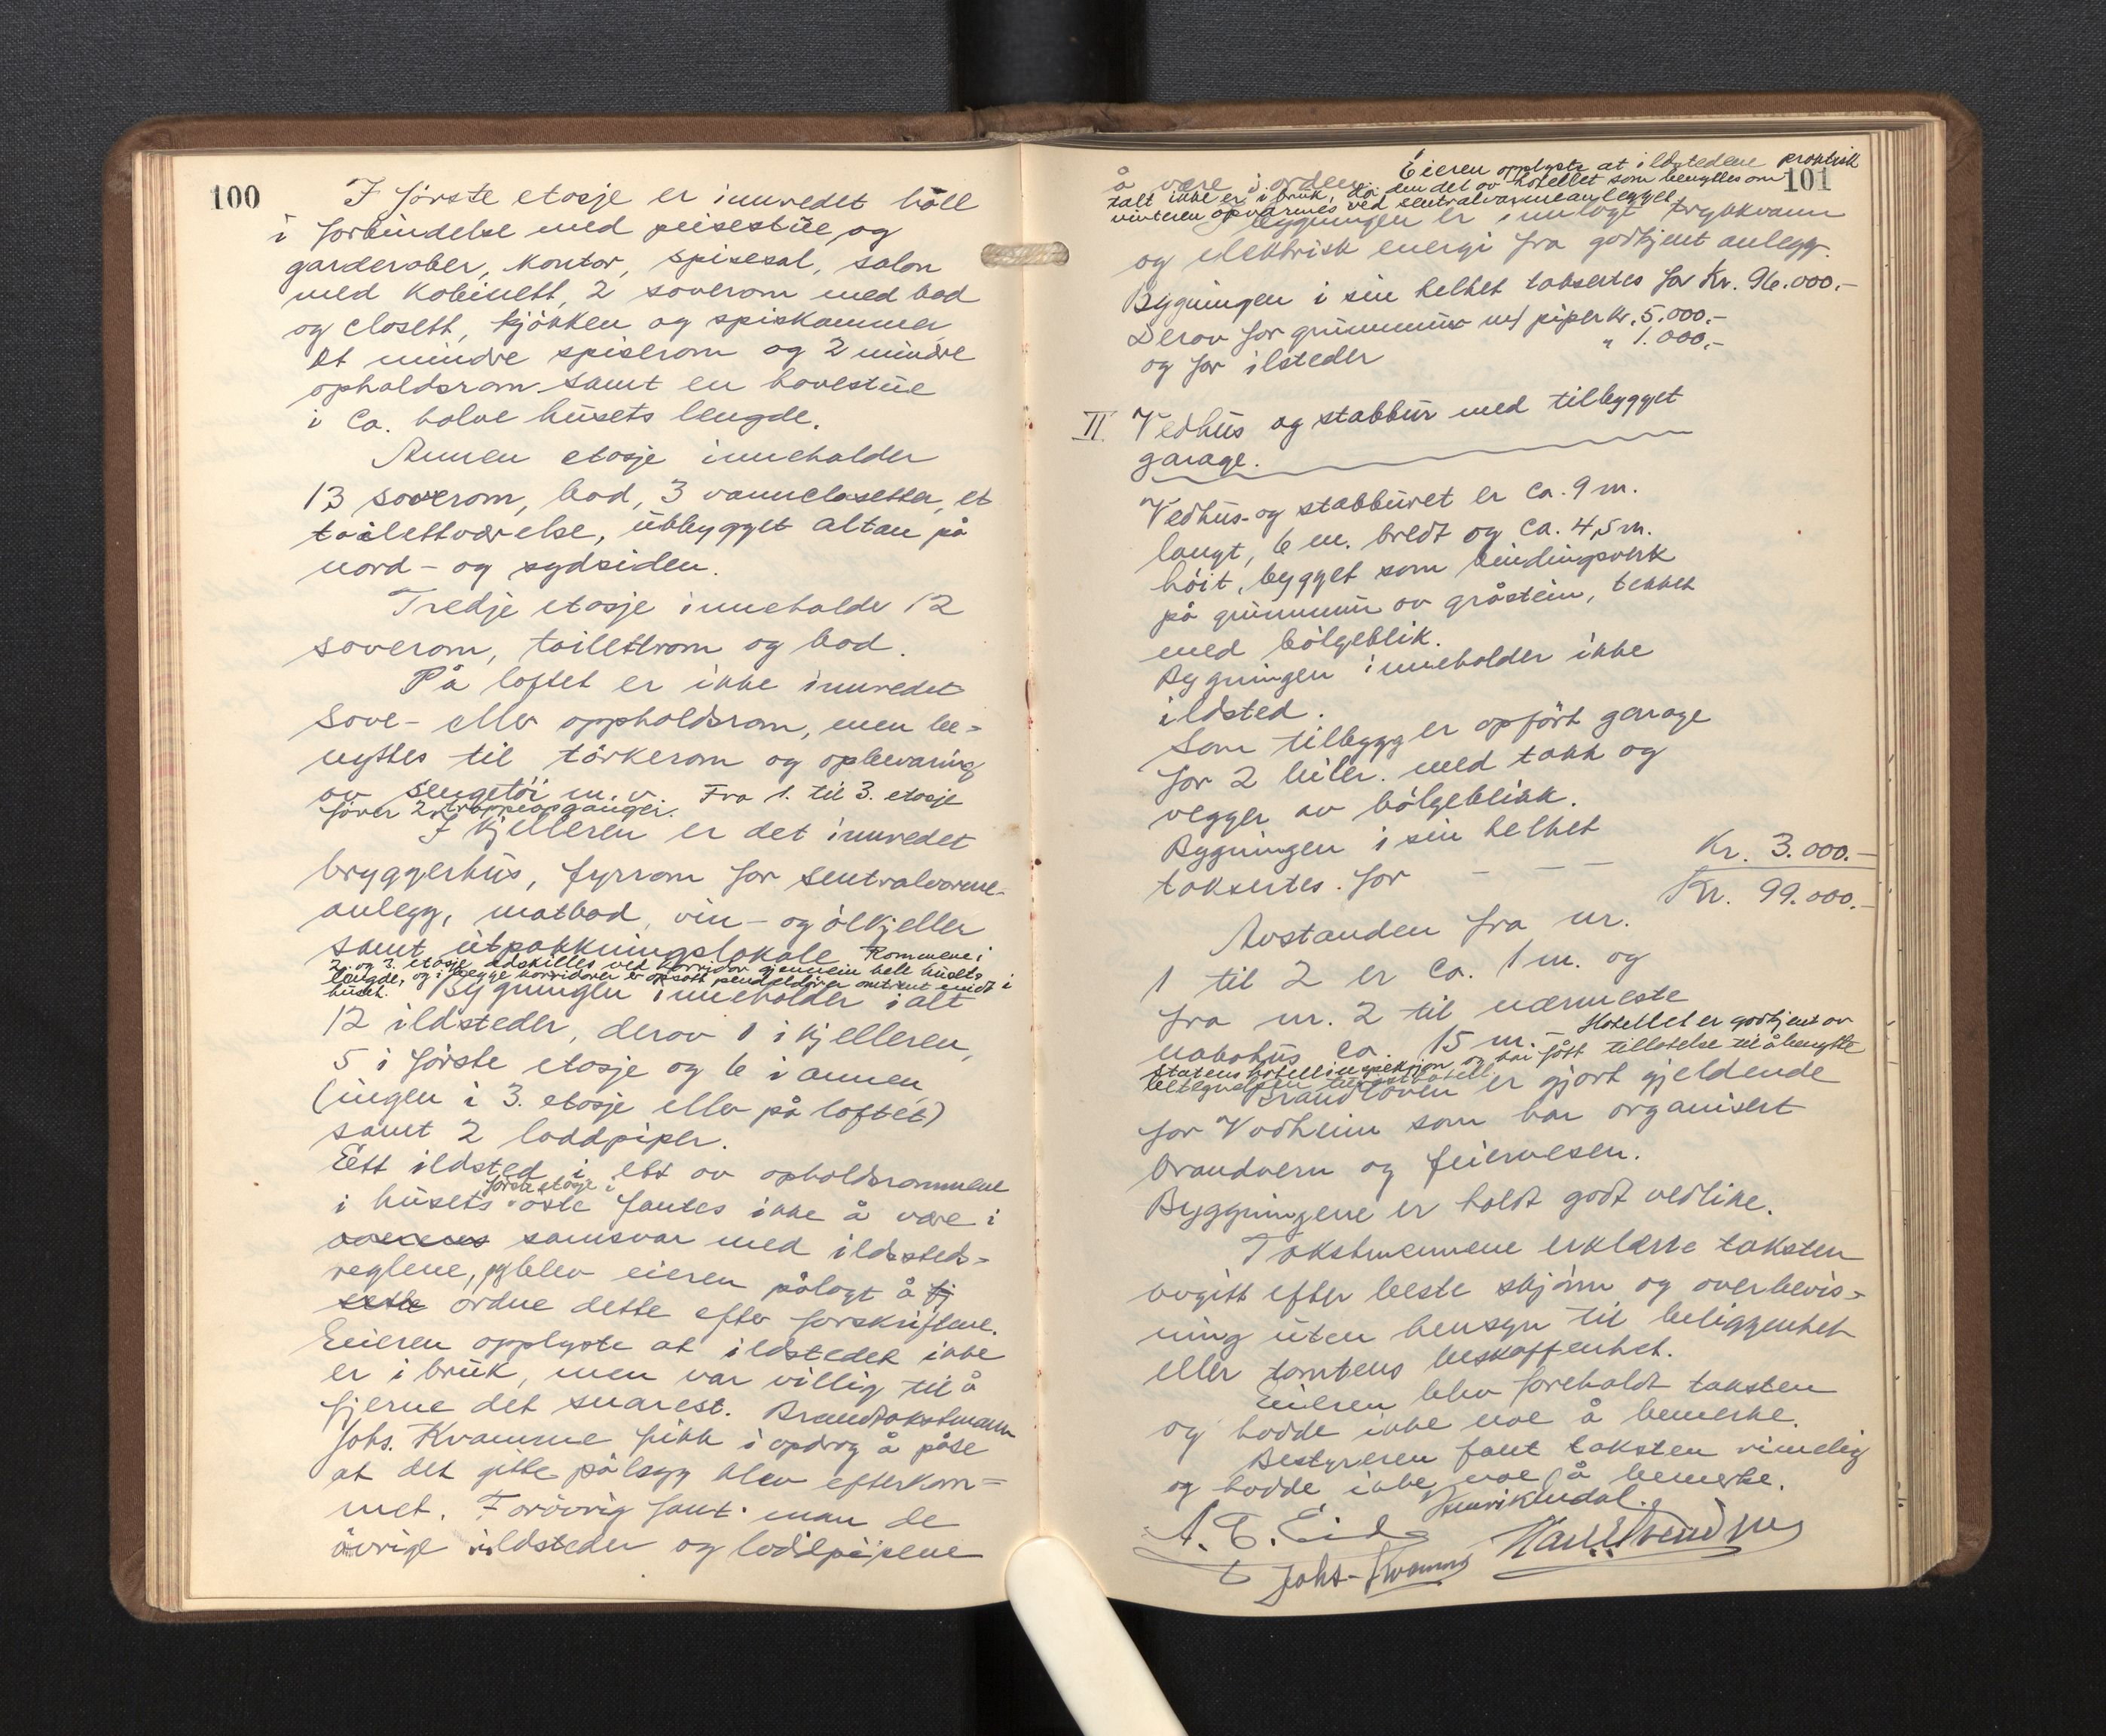 100
I förste etasje er innredet hall
i forbindelse med peisestue og
garderober, kontor, spisesal, salon
med kabinett, 2 soverom med bad
og closett, kjökken og spiskammer,
et mindre spiserom og 2 mindre
opholdsrom samt en havestue
i ca. halve husets lengde.
Annen etasje inneholder
13 soverom, bad, 3 vannclosetter, et
toilettværelse, utbygget altan på
nord- og sydsiden.
Tredje etasje inneholder 12
soverom, toilettrom og bad.
På loftet er ikke innredet
sove- eller oppholdsrom, men be-
nyttes til törkerom og opbevaring
av sengetöi m.v. Fra 1. til 3. etasje
förer 2 trappeopganger.
I kjelleren er det innredet
bryggerhus, fyrrom for sentralvarme-
anlegg, matbod, vin- og ölkjeller
samt utpakkningslokale. Rommene i
2. og 3. etasje adskilles ved korridor gjennem hele husets
lengde, og i begge korridorer er opsatt pendeldörer omtrent midt i
huset. Bygningen inneholder ialt
12 ildsteder, derav 1 i kjelleren,
5 i förste etasje og 6 i annen,
(ingen i 3. etasje eller på loftet)
samt 2 loddpiper.
Ett ildsted i ett av opholdsrommene
i förste etasje i
i husets öste fantes ikke å være i
samsvar med ildsteds-
reglene, og blev eieren pålagt å fj
sette ordne dette efter forskriftene.
Eieren opplyste at ildstedet ikke
er i bruk, men var villig til å
fjerne det snarest. Brandtakstmann
Johs. Kvamme fikk i opdrag å påse
at det gitte pålegg blev efterkom-
met. Forövrig fant man de
övrige ildsteder og loddpipene
101
å være i orden. Eieren opplyste at ildstedene praktisk
talt ikke er i bruk, da den del av hotellet som benyttes om
vinteren opvarmes ved sentralvarmeanlegget.
I bygningen er innlagt trykkvann
og elektrisk energi fra godkjent anlegg.
Bygningen i sin helhet taksertes for Kr. 96.000.-
Derav for grunnmur m/ piper Kr. 5.000.-
og for ilsteder " 1.000.-
II. Vedhus og stabbur med tilbygget
garage.
Vedhus- og stabburet er ca. 9 m.
langt, 6 m. bredt og ca. 4,5 m.
höit, bygget som bindingsverk
på grunnmur av gråstein, tekket
med bölgeblik.
Bygningen inneholder ikke
ildsted.
Som tilbygg er opfört garage
for 2 biler. med takk og
vegger av bölgeblikk.
Bygningen i sin helhet
taksertes for - - - Kr. 3.000.-
Kr. 99.000.-
Avstanden fra nr.
1 til 2 er ca. 1 m. og
fra nr. 2 til nærmeste
nabohus ca. 15 m. - Hotellet er godkjent av
Statens hotellinspeksjon og har fått tillatelse til å benytte
betegnelsen turisthotell.
Brandloven er gjort gjeldende
for Vadheim som har organisert
brandvern og feiervesen.
Byggningene er holdt godt vedlike.
Takstmennene erklærte taksten
avgitt efter beste skjönn og overbevis-
ning uten hensyn til beliggenhet
eller tomtens beskaffenhet.
Eieren blev foreholdt taksten
og hadde ikke noe å bemerke.
Bestyreren fant taksten rimelig
og hadde ikke noe å bemerke.
A. E. Eide
Johs. Kvamme